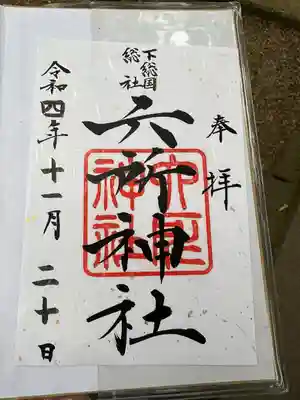 奉拝
下総国
総社
六所神社
令和四年十一月二十日
六所
神社